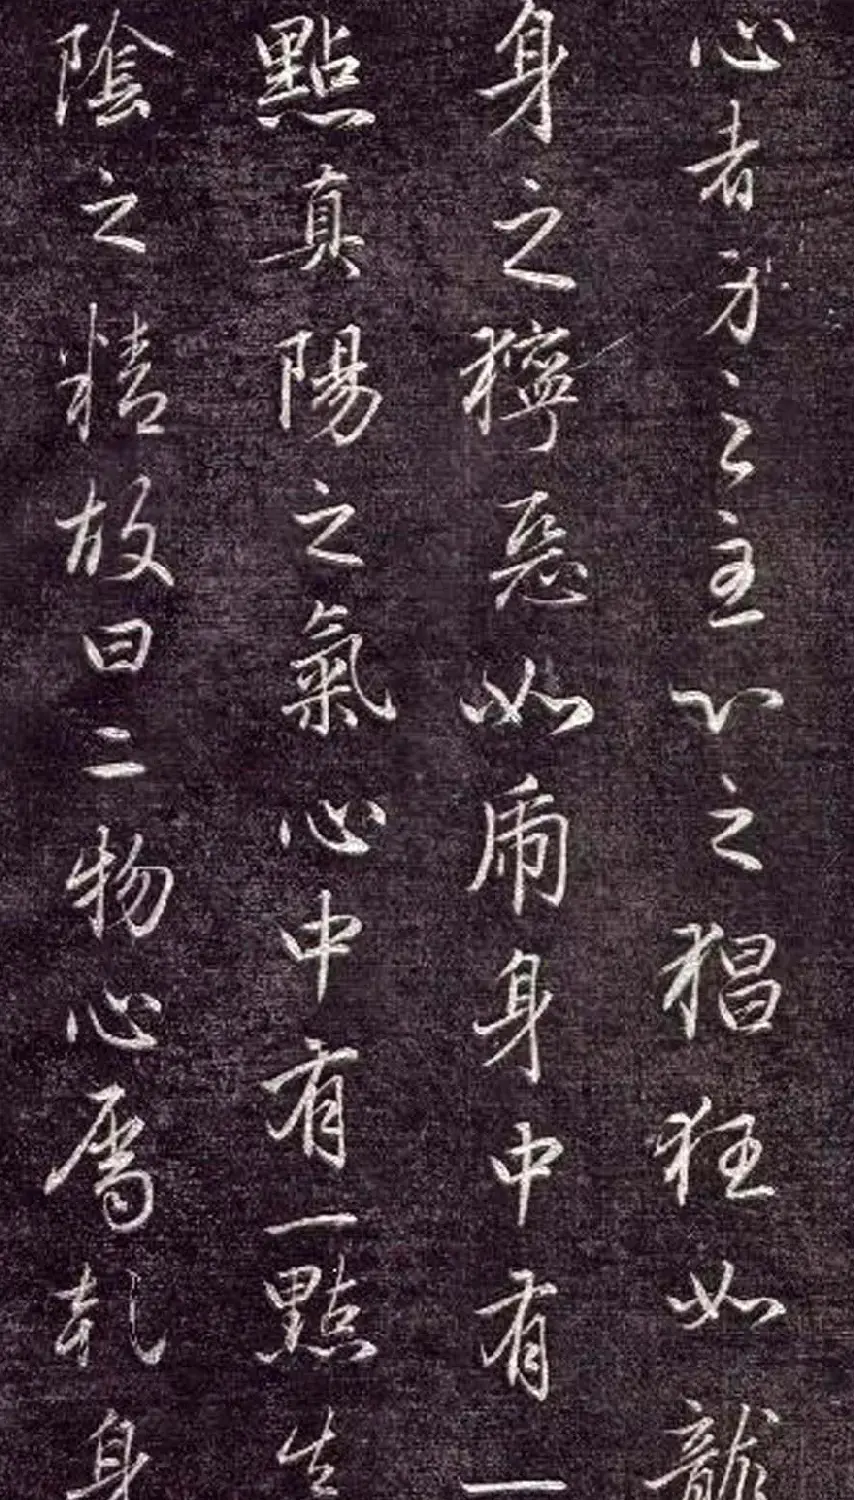 心者身之主心之猖狂如龍
身之獰惡如虎身中有一
點真陽之氣心中有一點
陰之精故曰二物心屬乾身